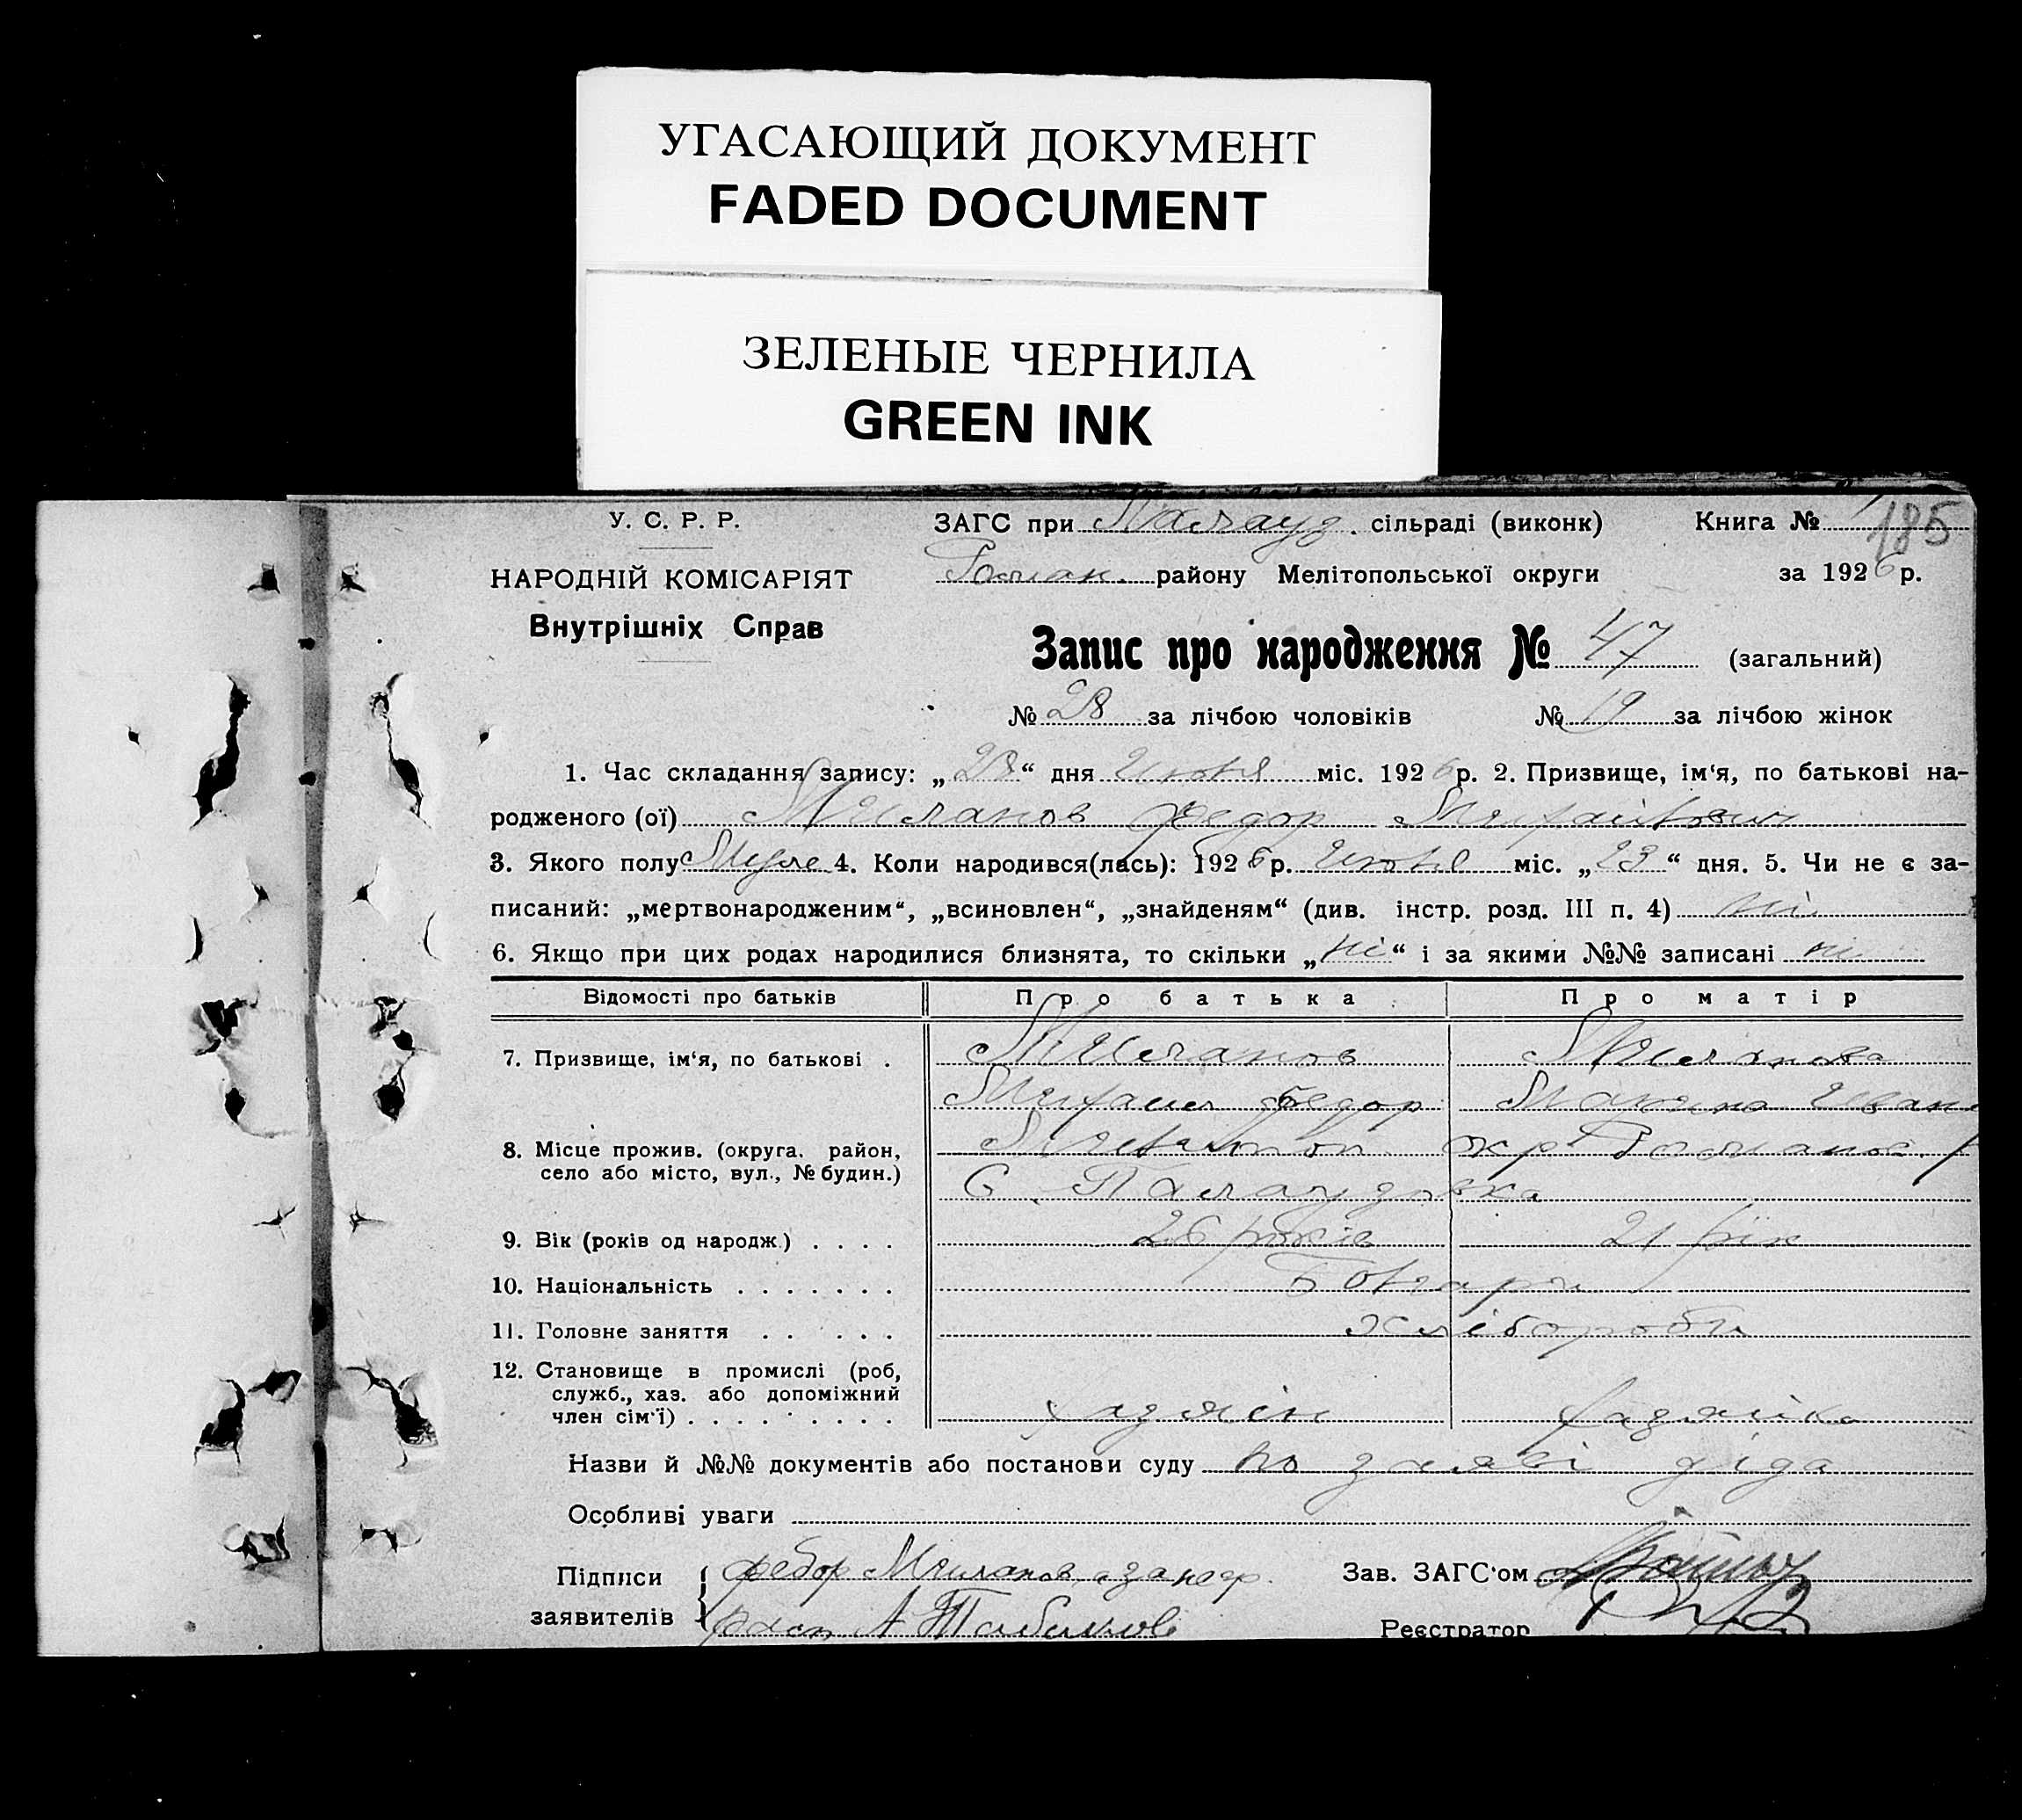 УГАСАЮЩИЙ ДОКУМЕНТ
FADED DOCUMENT
ЗЕЛЕНЫЕ ЧЕРНИЛА
GREEN INK
У. С. Р. Р.
НАРОДНІЙ КОМІСАРІЯТ
Внутрішніх Справ
ЗАГС при Палауз. сільраді (виконк) Книга № 185
району Мелітопольської округи за 1926 р.
Запис про народження № 47 (загальний)
№ 28 за лічбою чоловіків № 19 за лічбою жінок
1. Час складання запису: „28“ дня Июня міс. 1926 р. 2. Призвище, ім‘я, по батькові на-
родженого (ої) Миланов Федор
3. Якого полу Муже 4. Коли народився(лась): 1926 р. Июня міс. „23“ дня. 5. Чи не є за-
писаний: „мертвонародженим“, „всиновлен“, „знайденям“ (див. інстр. розд. III п. 4) ні
6. Якщо при цих родах народилися близнята, то скільки „ні“ і за якими №№ записані ні
Відомості про батьків Про батька Про матір
7. Призвище, ім‘я, по батькові . Миланов Миланова
Михаил Федор Иван
8. Місце прожив. (округа, район, окр
село або місто, вул., № будин.) С. Палаузовка
9. Вік (років од народж.) . . . . 26 років 21 рік
10. Національність . . . . . . . Болгари
11. Головне заняття . . . . . хлібороби
12. Становище в промислі (роб,
служб., хаз. або допоміжний
член сім‘ї) . . . . . . . . . хазяїн хазяйка
Назви й №№ документів або постанови суду по заяві діда
Особливі уваги
Підписи
заявителів
Федор Миланов, а за нєгр.
расп А
Зав. ЗАГС‘ом
Реєстратор